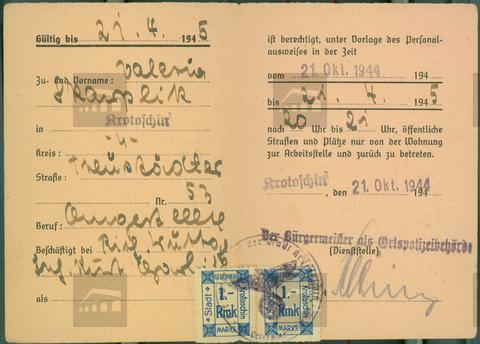 Gültig bis 21. 4. 1945
Zu- und Vorname: Valeria
Skarplik
in Krotoschin
Kreis: -"-
Straße:
Nr. 53
Beruf: Angestellte
Beschäftigt bei
als
ist berechtigt, unter Vorlage des Personal-
ausweises in der Zeit
vom 21. Okt. 1944 194
bis 21. 4. 1945
nach 20 Uhr bis 21 Uhr, öffentliche
Straßen und Plätze nur von der Wohnung
zur Arbeitsstelle und zurück zu betreten.
Krotoschin, den 21. Okt. 1944 194
Der Bürgermeister als Ortspolizeibehörde
(Dienststelle)
GEBÜHREN
Stadt
1.-
Rmk
Krotoschin
MARKE
GEBÜHREN
Stadt
1.-
Rmk
Krotoschin
MARKE